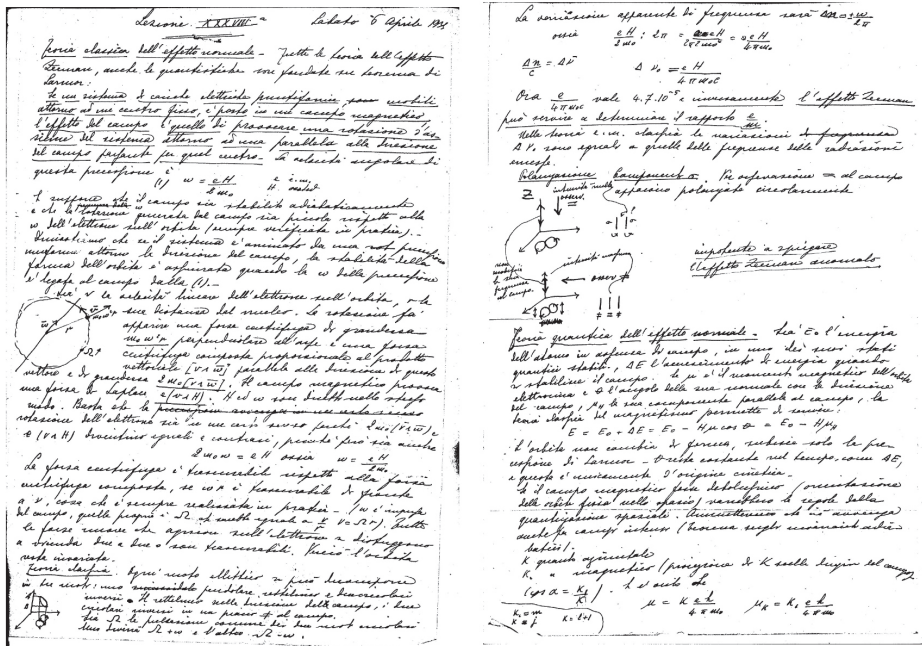 Lezione XXXVIIIa Sabato 6 Aprile 1935
Teoria classica dell'effetto normale - Tutte le teorie dell'effetto
Zeeman, anche le quantistiche son fondate su teorema di
Larmor:
Se un sistema di cariche elettriche puntiformi mobili
attorno ad un centro fisso, è posto in un campo magnetico
l'effetto del campo è quello di provocare una rotazione d'as-
sieme del sistema attorno ad una parallela alla direzione
del campo passante per quel centro. La velocità angolare di
questa precessione è
(1) w = eH / 2 m₀ e e.m. H
Si suppone che il campo sia stabilito adiabaticamente
e che la rotazione generata dal campo sia piccola rispetto alla
w dell'elettrone sull'orbita (sempre verificata in pratica).-
Dimostriamo che se il sistema è animato da una
uniforme attorno la direzione del campo, la stabilità della
forma dell'orbita è assicurata quando la w della precessione
è legata al campo dalla (1).-
Sia v la velocità lineare dell'elettrone sull'orbita, r la
sua distanza dal nucleo. La rotazione fa
apparire una forza centrifuga di grandezza
m₀ w² r perpendicolare all'asse e una forza
centrifuga composta proporzionale al prodotto
vettoriale [v∧w] parallela alla direzione di questo
vettore e di grandezza 2m₀[v∧w]. Il campo magnetico provoca
una forza di Laplace e[v∧H]. H e w son diretti nello stesso
modo. Basta che la
rotazione dell'elettrone sia in un certo verso perché 2m₀(v∧w) e
e(v∧H) diventino eguali e contrari, purché però sia anche
2m₀w = eH ossia w = eH / 2m₀
La forza centrifuga è trascurabile rispetto alla forza
centrifuga composta, se wr è trascurabile di fronte
a v, cosa che è sempre realizzata in pratica - (w è
del campo, quella propria è Ω ed sarebbe eguale a v/r v=Ωr). Tutte
le forze nuove che agiscono sull'elettrone si distruggono
a vicenda due a due o son trascurabili. Perciò l'orbita
resta invariata.
Teoria classica Ogni moto ellittico si può decomporre
in tre moti: uno pendolare rettilineo e due circolari
inversi. Il rettilineo nella direzione del campo, i due
circolari inversi in un piano ⊥ al campo.
Sia Ω la pulsazione comune dei due moti circolari
Uno diviene Ω+w e l'altro Ω-w.
La variazione apparente di frequenza sarà Δn = w / 2π
ossia eH / 2m₀ : 2π = eH / 4πm₀
Δn / c = Δν Δν₀ = eH / 4πm₀c
Ora e / 4πm₀c vale 4.7.10⁻⁵ e inversamente l'effetto Zeeman
può servire a determinare il rapporto e / m₀
Nella teoria e.m. classica le variazioni di frequenza
Δν₀ sono eguali a quelle delle frequenze delle radiazioni
emesse.
Polarizzazione Componente σ. Per osservazione = al campo
appaiono polarizzate circolarmente
Z
osserv.
non
modifica
la sua
frequenza
al campo.
impotente a spiegare
l'effetto Zeeman anomalo
Teoria quantica dell'effetto normale - Sia E₀ l'energia
dell'atomo in assenza di campo, in uno dei suoi stati
quantici stabili, ΔE l'aumento di energia quando
si stabilisce il campo. Se μ è il momento magnetico dell'orbita
elettronica e θ l'angolo della sua normale con la direzione
del campo, μ_H la sua componente parallela al campo, la
teoria classica del magnetismo permette di scrivere:
E = E₀ + ΔE = E₀ - Hμ cos θ = E₀ - Hμ_H
L'orbita non cambia di forma, subisce solo la pre-
cessione di Larmor - θ resta costante nel tempo, come ΔE,
e questa è unicamente d'origine cinetica.
Se il campo magnetico fosse debolissimo (orientazione
della orbita fissa nello spazio) varrebbero le regole della
quantizzazione spaziale. Ammettiamo che ciò avvenga
anche per campi intensi (teorema sugli invarianti adia-
batici).
K quanto azimutale
K₁ " magnetico (proiezione di K sulla direzione del campo)
(cos α = K₁ / K). È noto che
μ = K eh / 4πm₀ μ_K = K₁ eh / 4πm₀
K₁ = m
K = j
K = l+1